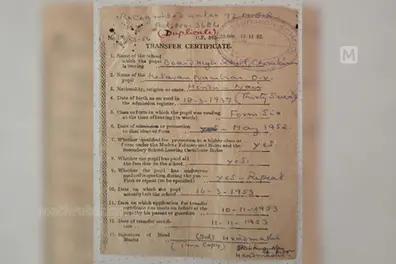 Recognised under
(Duplicate)
No.
TRANSFER CERTIFICATE.
1. Name of the school
which the pupil
is leaving Board High School
2. Name of the
pupil Kelavan Nambiar O.V.
3. Nationality, religion or caste. Hindu - Nair
4. Date of birth as entered in
the admission register. 18-3-1937
5. Class or form in which the pupil was reading
at the time of leaving (in words) Form Six
6. Date of admission or promotion
to that class or form May 1952.
7. Whether qualified for promotion to a higher class or
form under the Madras Educational Rules and the
Secondary School-Leaving Certificate Rules yes.
8. Whether the pupil has paid all
the fees due to the school yes.
9. Whether the pupil has undergone
medical inspection during the year
First or repeat (to be specified) yes - Repeat
10. Date on which the pupil
actually left the school 16-3-1953
11. Date on which application for transfer
certificate was made on behalf of the
pupil by his parent or guardian 10-11-1953
12. Date of transfer certificate 11-11-1953
13. Signature of Head
Master (Sd) Headmaster
(True Copy)
Headmaster
M